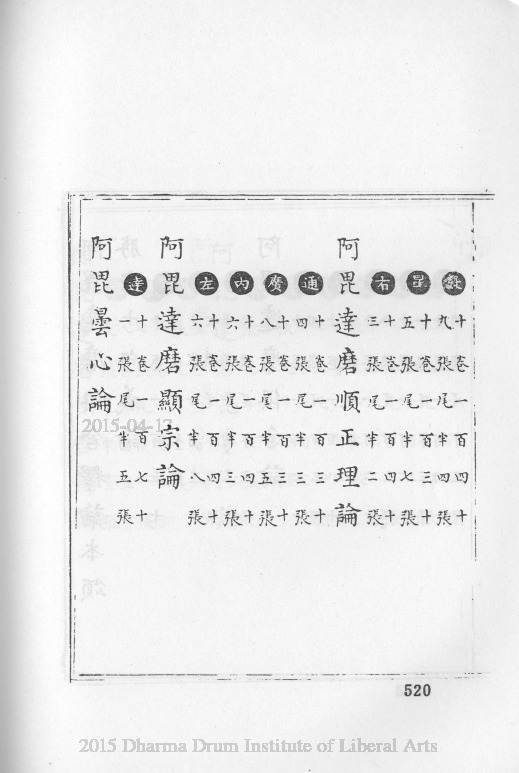 疑 十卷一百四十
九張尾半四張
星 十卷一百三十
五張尾半七張
右 十卷一百四十
三張尾半二張
阿毘達磨順正理論
通 十卷一百三十
四張尾半三張
廣 十卷一百三十
八張尾半五張
內 十卷一百四十
六張尾半三張
左 十卷一百四十
六張尾半八張
阿毘達磨顯宗論
達 十卷一百七十
一張尾半五張
阿毘曇心論
2015-04-17
520
2015 Dharma Drum Institute of Liberal Arts